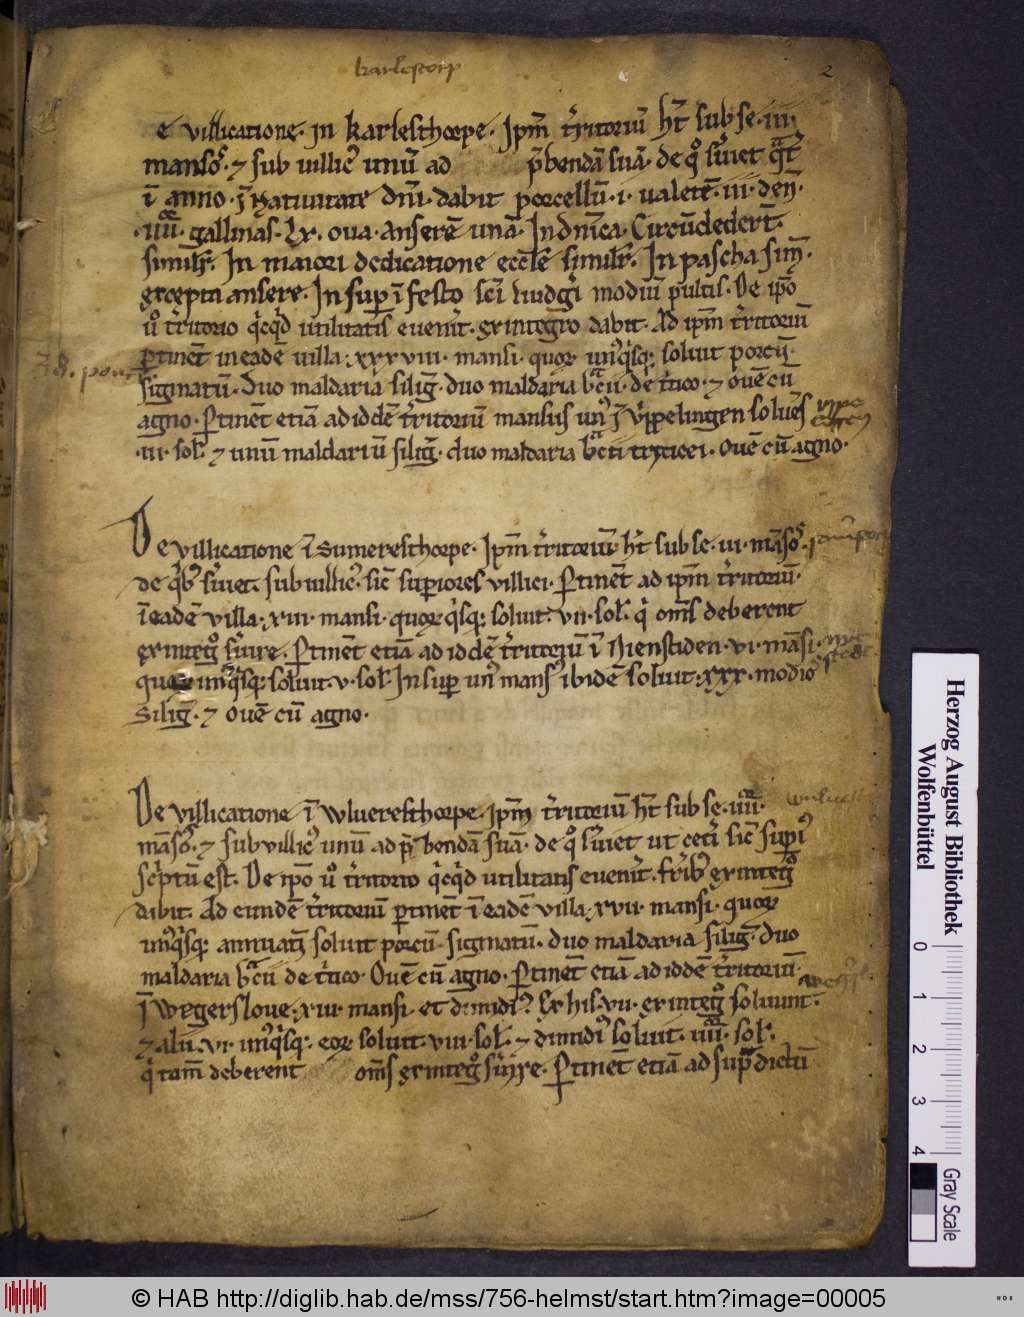 karlestorp
2
e villicatione. in karlesthorpe. Ipm̄ t̄ritoriū ht̄ sub se. iiii.
mansoꝰ. ⁊ sub uillic̄ unū ad p̄bendā suā. de qͦ s̄uiet qͣt̄
ī anno. Ī Natiuitate dn̄i. dabit porcellū. i. ualetē. iii. den̄.
.iiii. gallinas. Lx. oua. Anserē unā. In dn̄ica. Circūdedert̄.
similit̄. In maiori dedicatione eccl̄e similit̄. In pascha sim̄.
excepta ansere. In sup̄ ī festo sc̄i liudḡi modiū pultis. De ip̄o
ūo t̄ritorio qͥcqͥd utilitatis euenīt. ex integro dabit. Ad ipm̄ t̄ritoriū
ꝑtinēt in eadē uilla. xxxviii. mansi. quoꝝ unꝰqͥsqꝫ soluit porcū.
signatū. Duo maldaria silig̅. duo maldaria bͣcii. de t̄tico. ⁊ ouē cū
agno. Ꝑtinēt etiā ad iddē t̄ritoriū mansus unꝰ ī Vppelingen soluēs
.iii. sol̄. ⁊ unū maldariū silig̅. duo maldaria bͣcii trycicei. Ouē cū agno.
De villicatione ī Sumeresthorpe. Ipm̄ t̄ritoriū. ht̄ sub se. iii. māsoꝰ.
de qͥbꝰ s̄uiet. sub uillicꝰ. sic̄ superiores villici. Ꝑtinēt ad ipm̄ t̄ritoriū.
ī eadē villa. xiii. mansi. quoꝝ qͥsqꝫ soluit. vii. sol̄. qͥ om̄s deberent
ex integͦ s̄uire. Ꝑtinēt etiā ad iddē t̄ritoriū ī Nienstiden. vi. māsi.
quoꝝ unꝰqͥsqꝫ soluit. v. sol̄. In sup̄ unꝰ mansꝰ ibidē soluit. xxx. modioꝰ
Silig̅. ⁊ ouē cū agno.
De villicatione ī wlueresthorpe. Ipm̄ t̄ritoriū ht̄ sub se. iiii.
māsoꝰ. ⁊ sub villicꝰ unū ad p̄bendā suā. de qͦ s̄uiet ut cet̄i sic̄ supiꝰ
sc̄ptū est. De ip̄o ūo t̄ritorio qͥcqͥd utilitatis euenīt. fr̄ibꝰ ex integͦ
dabit. Ad eundē t̄ritoriū ꝑtinēt ī eadē villa. xvii. mansi. quoꝝ
unꝰqͥsqꝫ annuatī soluit porcū. signatū. duo maldaria silig̅. duo
maldaria bͣcii de t̄tico. Ouē cū agno. Ꝑtinēt etiā ad iddē t̄ritoriū.
ī Wegersloue. xiii. mansi. et dimidiꝰ. Ex his. vii. ex integͦ soluunt.
⁊ alii. vi. unꝰqͥsqꝫ eoꝝ soluit. viii. sol̄. ⁊ dimidiꝰ soluit. iiii. sol̄.
qͥ tam̄ deberent om̄s ex integͦ s̄uire. Ꝑtinēt etiā ad sup̄dictū
Herzog August Bibliothek
Wolfenbüttel
0 1 2 3 4
Gray Scale
© HAB http://diglib.hab.de/mss/756-helmst/start.htm?image=00005